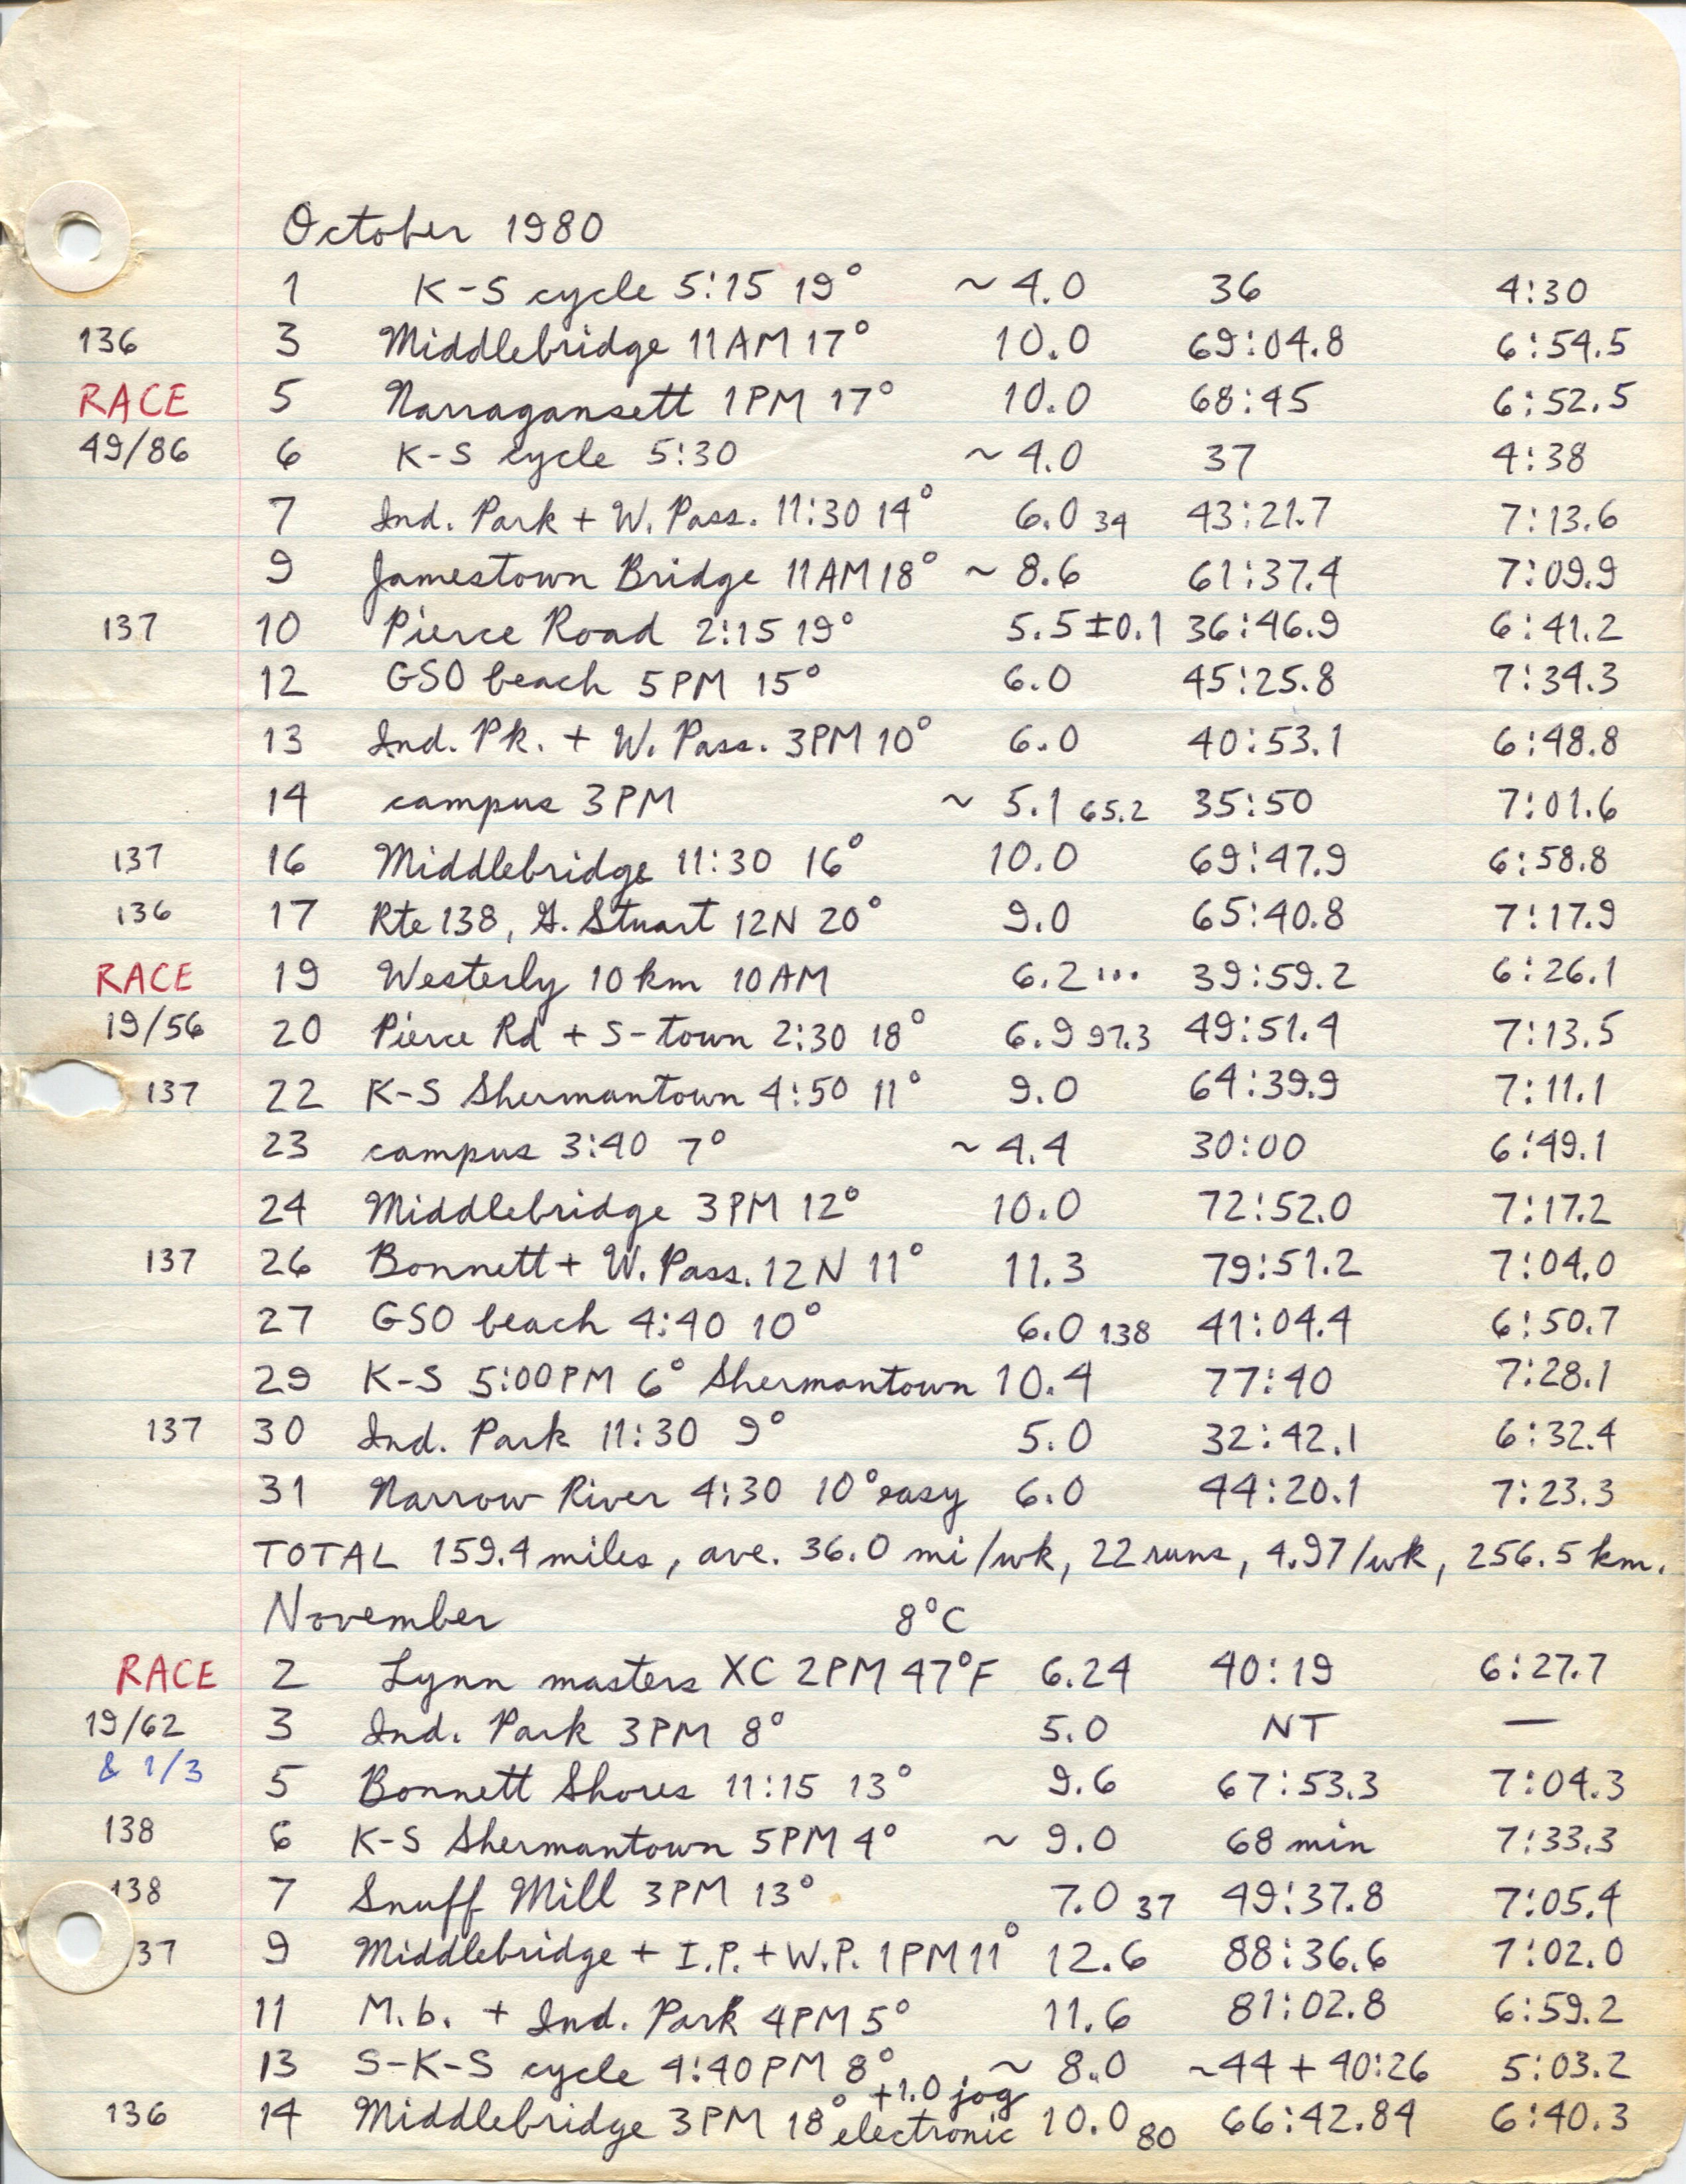 October 1980
1 K-S cycle 5:15 19° ~ 4.0 36 4:30
136 3 Middlebridge 11AM 17° 10.0 69:04.8 6:54.5
RACE 5 Narragansett 1PM 17° 10.0 68:45 6:52.5
49/86 6 K-S cycle 5:30 ~ 4.0 37 4:38
7 Ind. Park + W. Pass. 11:30 14° 6.0 34 43:21.7 7:13.6
9 Jamestown Bridge 11AM 18° ~ 8.6 61:37.4 7:09.9
137 10 Pierce Road 2:15 19° 5.5±0.1 36:46.9 6:41.2
12 GSO beach 5PM 15° 6.0 45:25.8 7:34.3
13 Ind. Pk. + W. Pass. 3PM 10° 6.0 40:53.1 6:48.8
14 campus 3PM ~ 5.1 65.2 35:50 7:01.6
137 16 Middlebridge 11:30 16° 10.0 69:47.9 6:58.8
136 17 Rte 138, G. Stuart 12N 20° 9.0 65:40.8 7:17.9
RACE 19 Westerly 10 km 10AM 6.2... 39:59.2 6:26.1
19/56 20 Pierce Rd + S-town 2:30 18° 6.9 97.3 49:51.4 7:13.5
137 22 K-S Shermantown 4:50 11° 9.0 64:39.9 7:11.1
23 campus 3:40 7° ~ 4.4 30:00 6:49.1
24 Middlebridge 3PM 12° 10.0 72:52.0 7:17.2
137 26 Bonnett + W. Pass. 12N 11° 11.3 79:51.2 7:04.0
27 GSO beach 4:40 10° 6.0 138 41:04.4 6:50.7
29 K-S 5:00PM 6° Shermantown 10.4 77:40 7:28.1
137 30 Ind. Park 11:30 9° 5.0 32:42.1 6:32.4
31 Narrow River 4:30 10° easy 6.0 44:20.1 7:23.3
TOTAL 159.4 miles, ave. 36.0 mi/wk, 22 runs, 4.97/wk, 256.5 km.
November 8°C
RACE 2 Lynn masters XC 2PM 47°F 6.24 40:19 6:27.7
19/62 3 Ind. Park 3PM 8° 5.0 NT —
& 1/3 5 Bonnett Shores 11:15 13° 9.6 67:53.3 7:04.3
138 6 K-S Shermantown 5PM 4° ~ 9.0 68 min 7:33.3
138 7 Snuff Mill 3PM 13° 7.0 37 49:37.8 7:05.4
37 9 Middlebridge + I.P. + W.P. 1PM 11° 12.6 88:36.6 7:02.0
11 M.b. + Ind. Park 4PM 5° 11.6 81:02.8 6:59.2
13 S-K-S cycle 4:40PM 8° ~ 8.0 ~44 + 40:26 5:03.2
+1.0 jog
136 14 Middlebridge 3PM 18° electronic 10.0 80 66:42.84 6:40.3